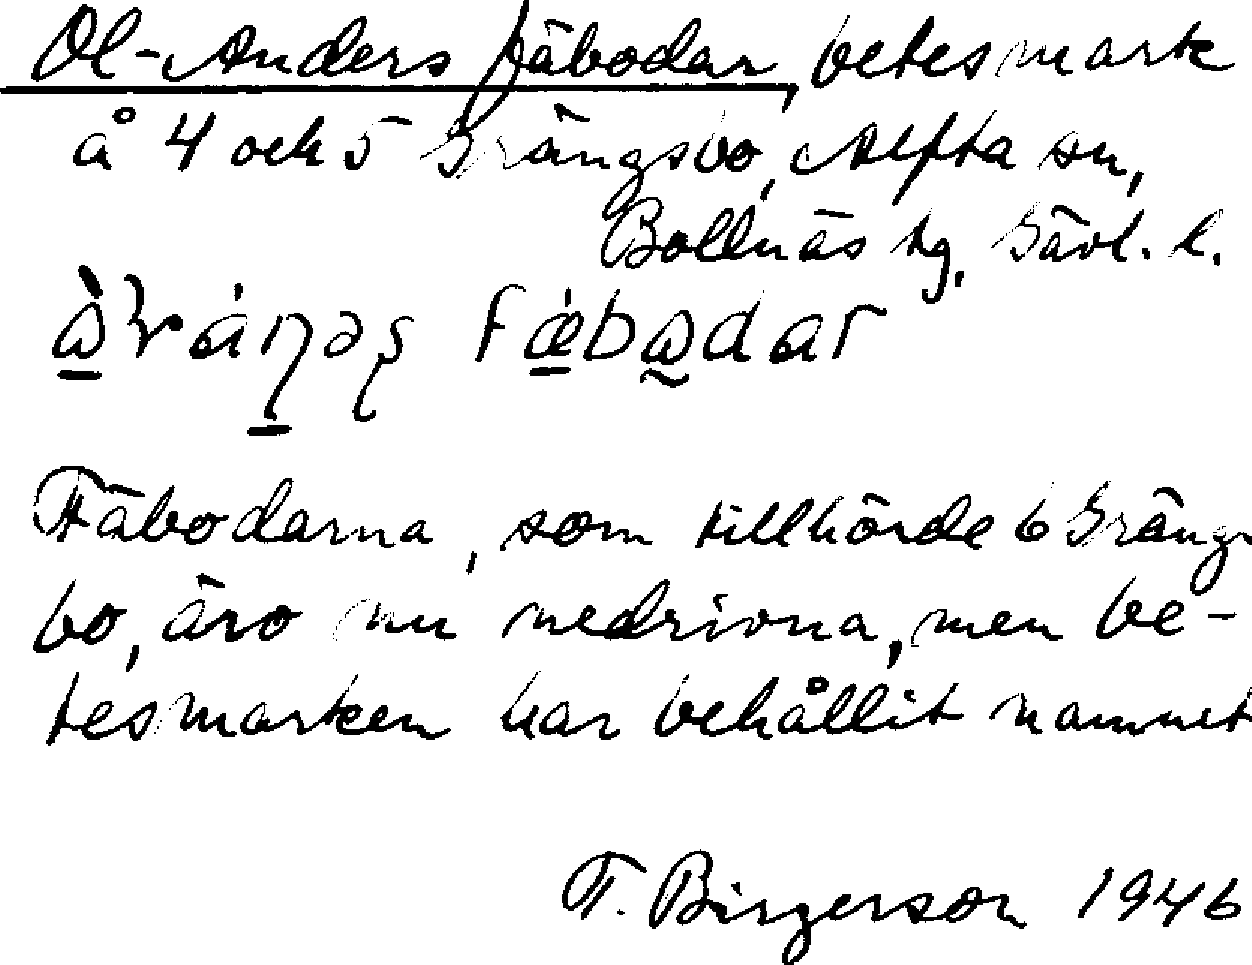 Ol-Anders fäbodar, betesmark
å 4 och 5 Grängsbo, Alfta sn,
Bollnäs hg, Gävl. l.
fæ̀bodar
Fäbodarna, som tillhörde 6 Grängs
bo, äro nu nedrivna, men be-
tesmarken har behållit namnet
F. Birgerson 1946